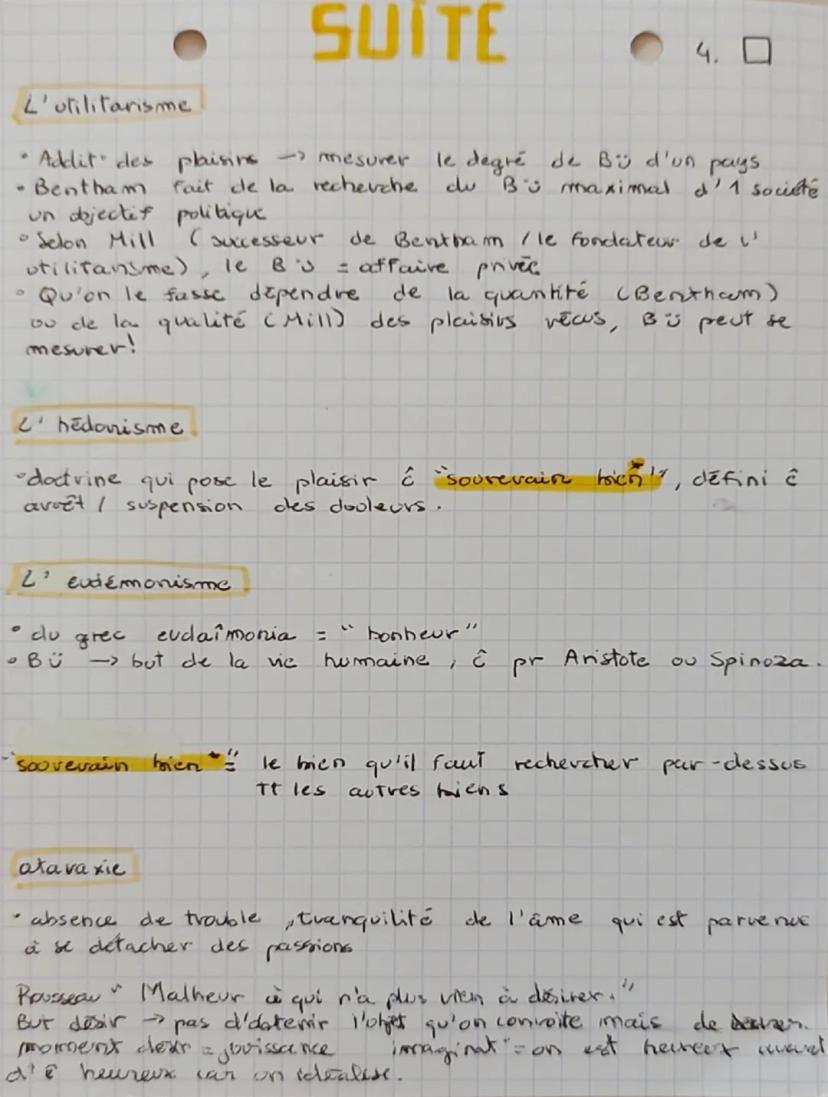 SUITE
4. □
L'utilitarisme
• Addit° des plaisirs → mesurer le degré de Bü d'un pays
• Bentham fait de la recherche du Bü maximal d'1 société
un objectif politique
• Selon Mill (successeur de Bentham / le fondateur de l'
utilitarisme), le Bü = affaire privée
• Qu'on le fasse dépendre de la quantité (Bentham)
ou de la qualité (Mill) des plaisirs vécus, Bü peut se
mesurer!
L'hédonisme
• doctrine qui pose le plaisir ĉ "souverain bien*", défini ĉ
arrêt / suspension des douleurs.
L'eudémonisme
• du grec eudaîmonia = "bonheur"
• Bü → but de la vie humaine, ĉ pr Aristote ou Spinoza.
"souverain bien*" = le bien qu'il faut rechercher par-dessus
tt les autres biens
ataraxie
• absence de trouble, tranquilité de l'âme qui est parvenue
à se détacher des passions
Rousseau "Malheur à qui n'a plus rien à désirer."
But désir → pas d'obtenir l'objet qu'on convoite mais de
moment désir = jouissance imaginat° = on est heureux avant
d'ê heureux car on idéalise.